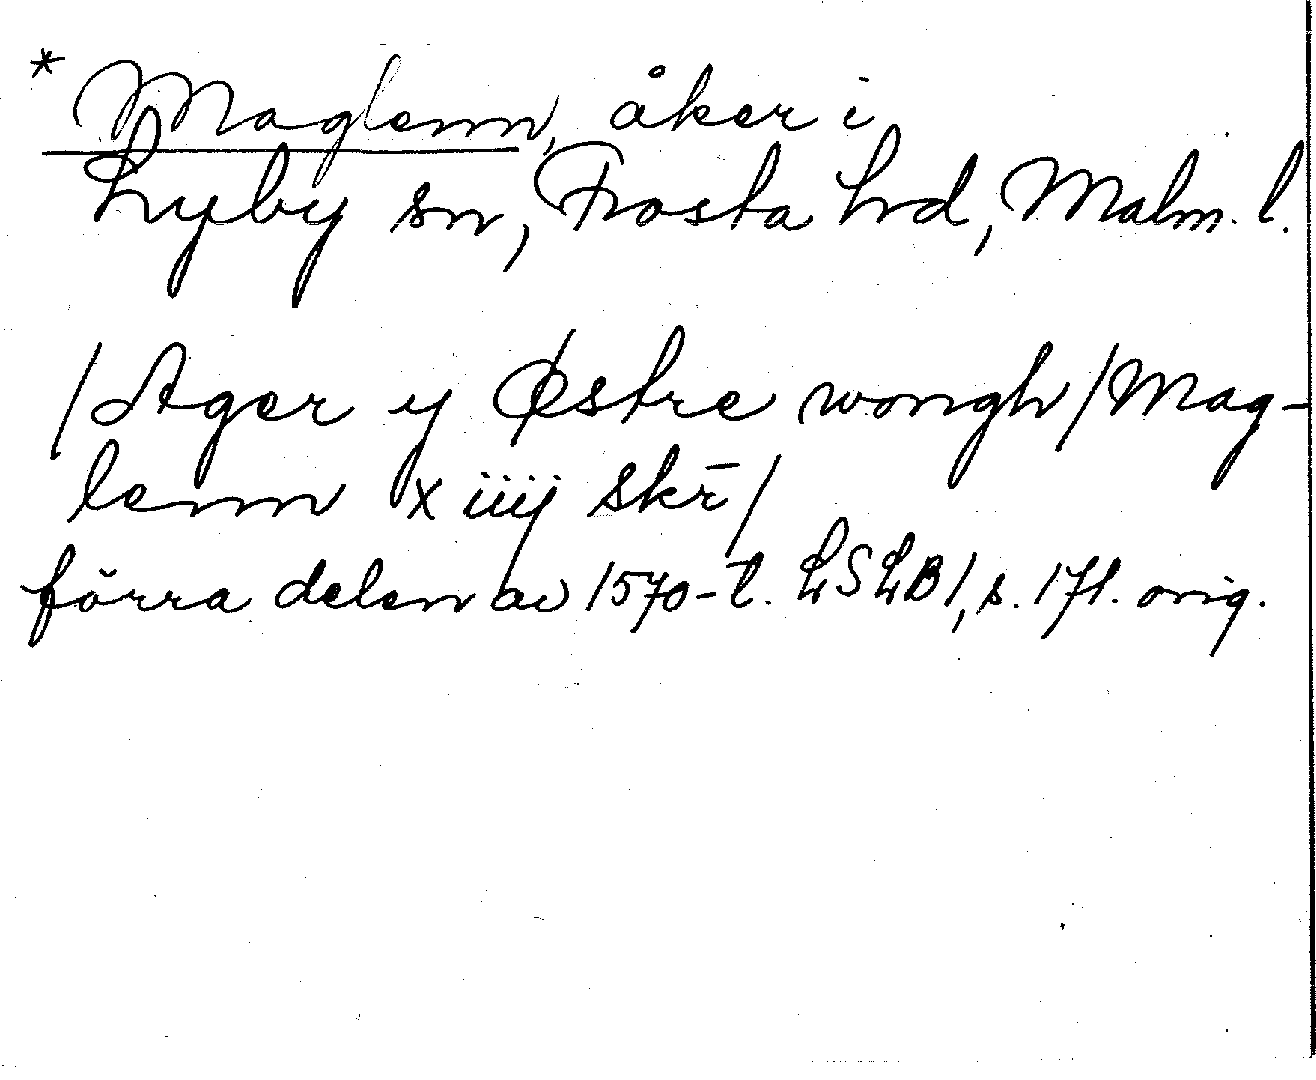 * Maglenn, åker i
Lyby sn, Frosta hd, Malm. l.
/Ager y Østre wongh/Mag-
lenn x iiij skr̄/
förra delen av 1570-t. LSLB1, s. 171. orig.